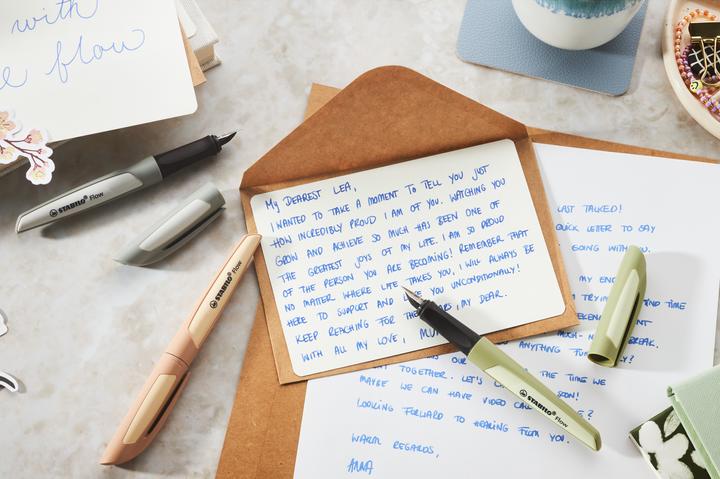 with
flow
STABILO Flow
STABILO Flow
MY DEAREST LEA,
I WANTED TO TAKE A MOMENT TO TELL YOU JUST
HOW INCREDIBLY PROUD I AM OF YOU. WATCHING YOU
GROW AND ACHIEVE SO MUCH HAS BEEN ONE OF
THE GREATEST JOYS OF MY LIFE. I AM SO PROUD
OF THE PERSON YOU ARE BECOMING! REMEMBER THAT
NO MATTER WHERE LIFE TAKES YOU, I WILL ALWAYS BE
HERE TO SUPPORT AND YOU UNCONDITIONALLY!
KEEP REACHING FOR , MY DEAR.
WITH ALL MY LOVE,
LAST TALKED!
QUICK LETTER TO SAY
GOING WITH
MY
AND TIME
BREAK.
ANYTHING
TOGETHER. LET'S THE TIME WE
MAYBE WE CAN HAVE VIDEO
LOOKING FORWARD TO HEARING FROM YOU.
WARM REGARDS,
ANNA
STABILO Flow